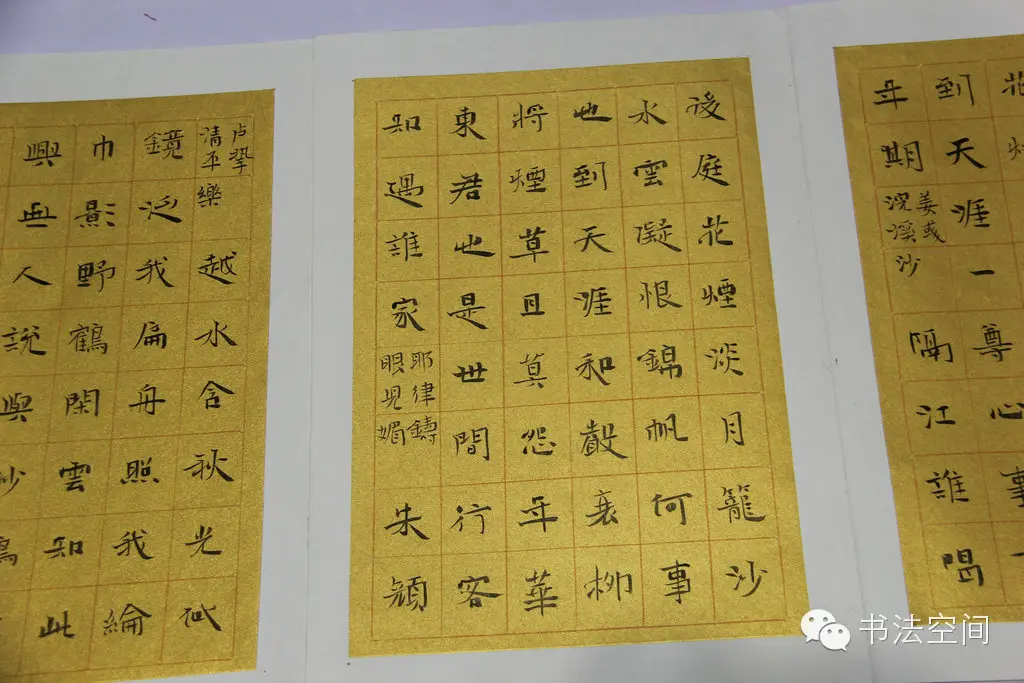 花
到天涯一尊心事
年期
姜彧
浣溪沙
隔江誰唱
後庭花煙淡月籠沙
水雲凝恨錦帆何事
也到天涯和聲衰柳
將煙草且莫怨年華
東君也是世間行客
知遇誰家
耶律鑄
眼兒媚
朱顏
卢挚
清平樂
越水含秋光似
鏡泛我扁舟照我綸
巾影野鶴閑雲知此
興無人說與沙
书法空间